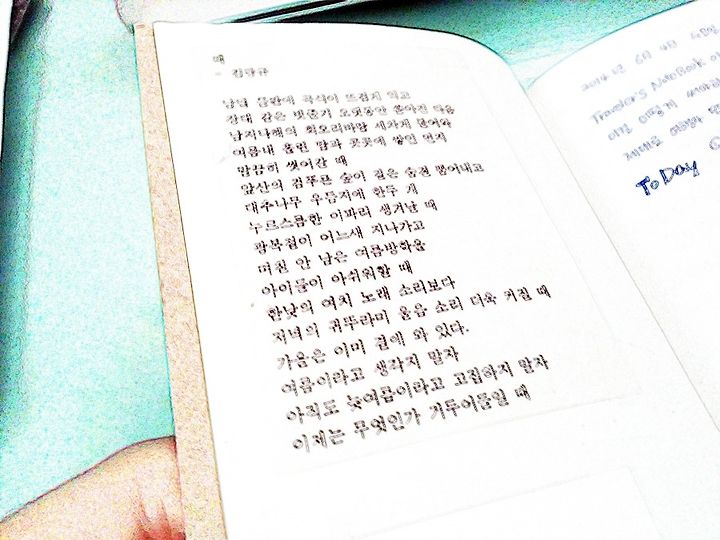 때
- 김광규
남녘 들판에 곡식이 뜨겁게 익고
장대 같은 빗줄기 오랫동안 쏟아진 다음
남지나해의 회오리바람 세차게 불어와
여름내 흘린 땀과 곳곳에 쌓인 먼지
말끔히 씻어갈 때
앞산의 검푸른 숲이 짙은 숨결 뿜어내고
대추나무 우듬지에 한두 개
누르스름한 이파리 생겨날 때
광복절이 어느새 지나가고
며칠 안 남은 여름방학을
아이들이 아쉬워할 때
한낮의 여치 노래 소리보다
저녁의 귀뚜라미 울음 소리 더욱 커질 때
가을은 이미 곁에 와 있다.
여름이라고 생각지 말자
아직도 늦여름이라고 고집하지 말자
이제는 무엇인가 거두어들일 때
2014년 6월
Traveler's NoteBook
To Day